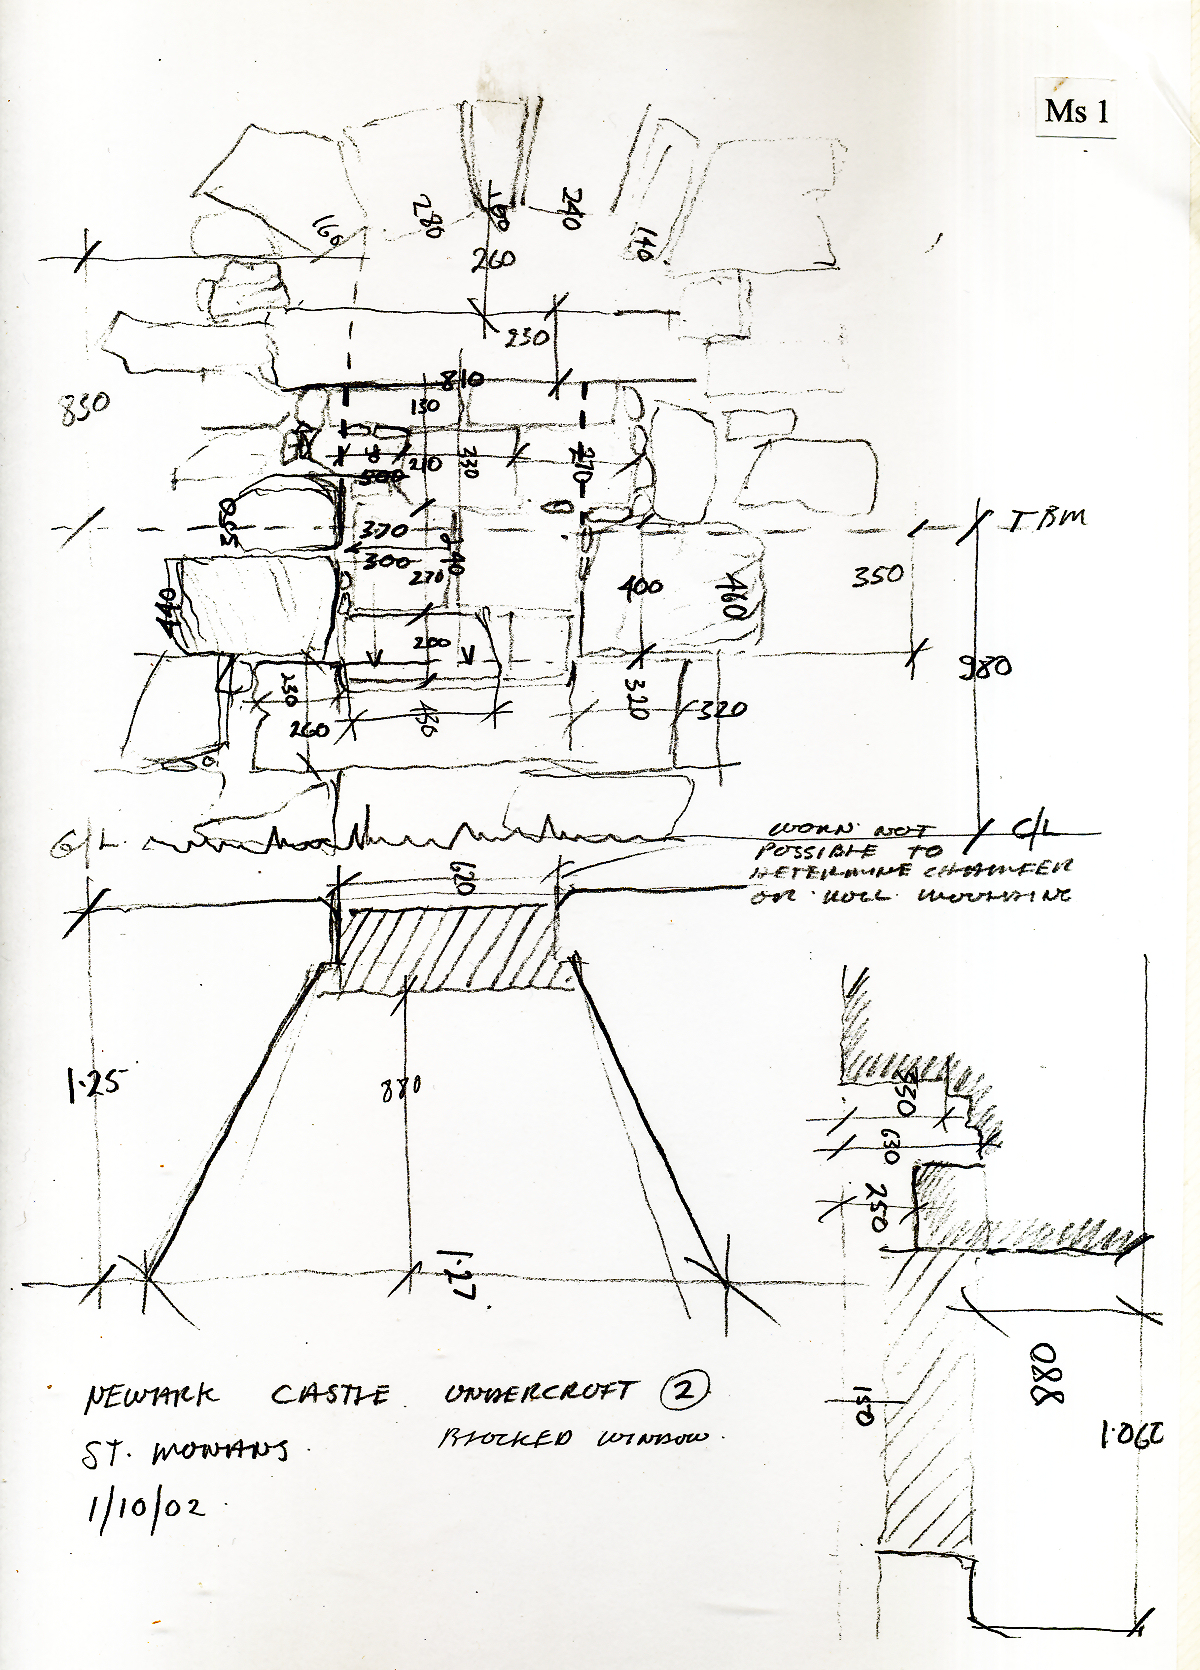 Ms 1
160
280
160
240
140
260
230
850
810
130
210
330
270
500
TBM
370
300
270
140
400
460
350
440
200
980
230
260
430
320
320
G/L
WORN NOT
POSSIBLE TO
DETERMINE CHAMFER
OR ROLL MOULDING
620
1.25
880
630
250
1.27
880
150
1.060
NEWARK CASTLE UNDERCROFT 2
ST. MONANS.
BLOCKED WINDOW.
1/10/02